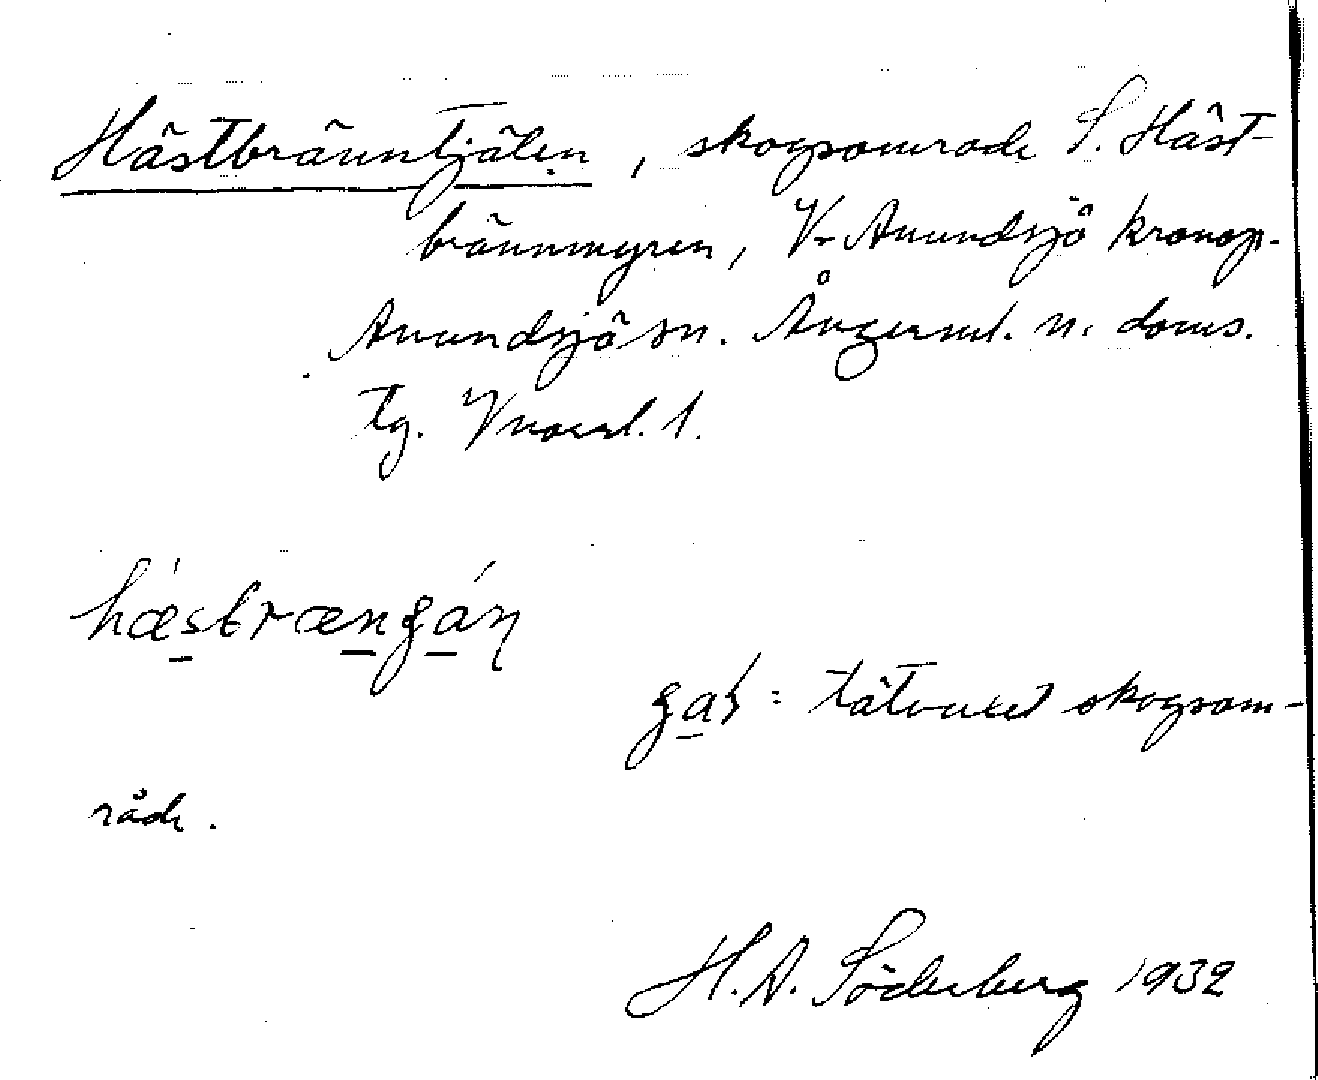 Hästbränntjälen, skogsområde S. Häst-
brännmyren, V. Anundsjö kronop.
Anundsjö sn. Ångerml. n. doms.
tg. Vnorrl. l.
hæstrængán
= tätvuxet skogsom-
råde.
H. A. Söderberg 1932